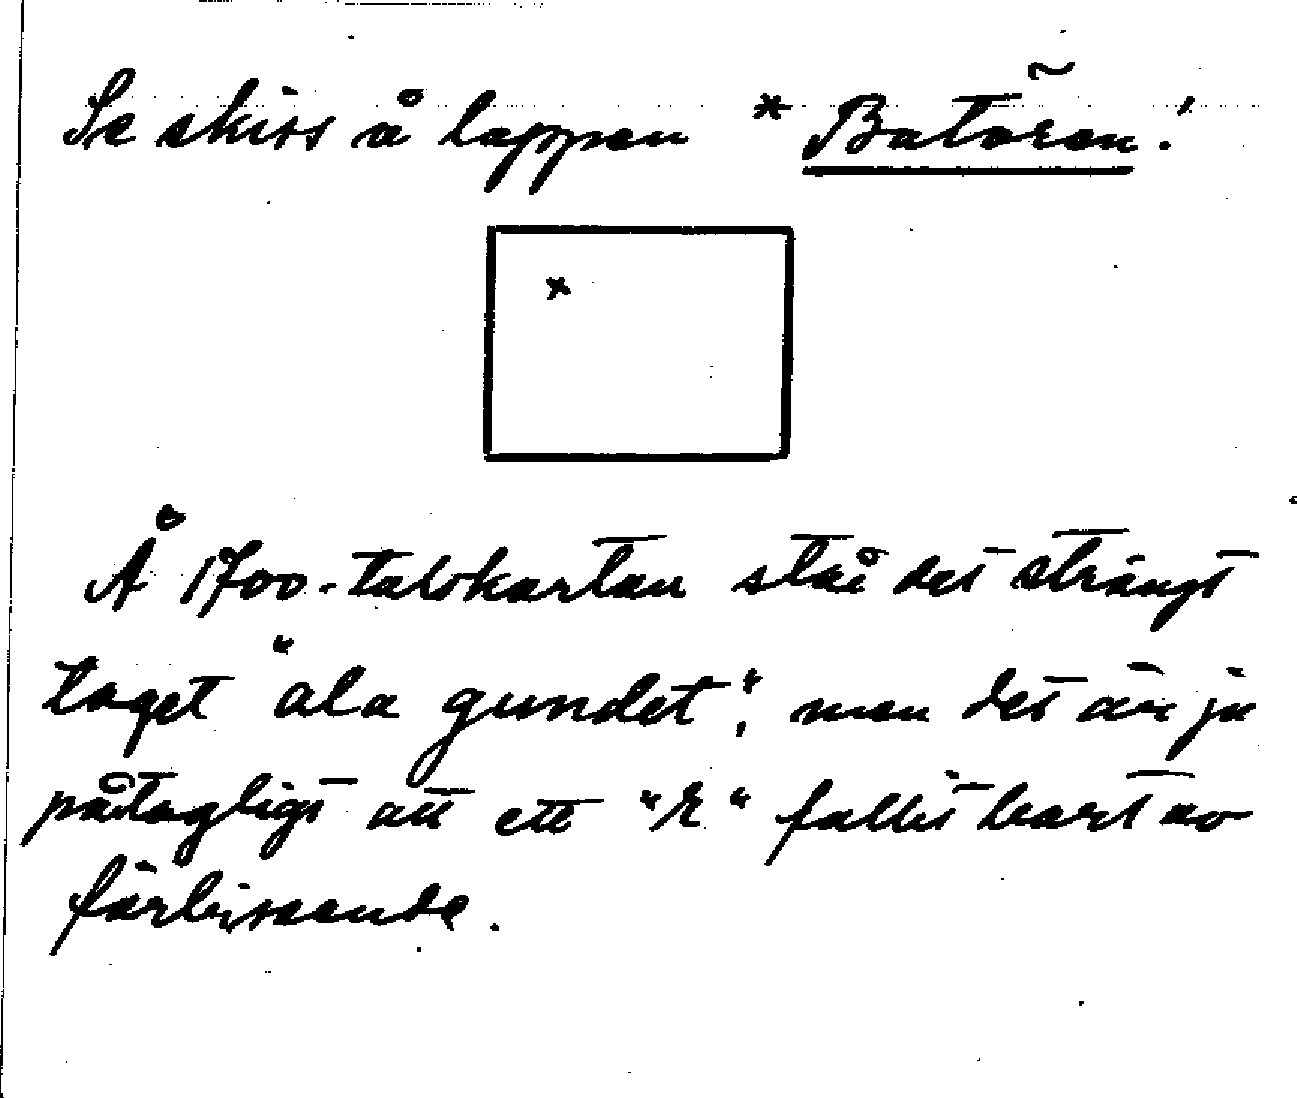 Se skiss å lappen * Batören!
x
Å 1700-talskartan står det strängt
taget "ala gundet", men det är ju
påtagligt att ett "r" fallit bort av
förbiseende.